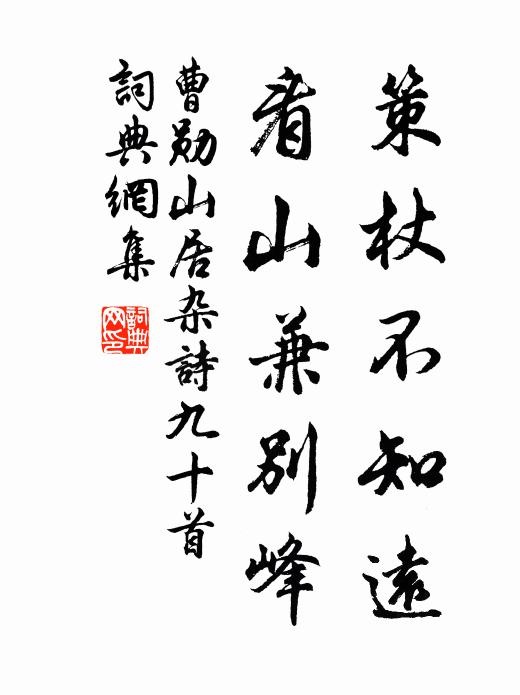 策杖不知遠
看山兼別峰
曹勛山居杂詩九十首
詞典網集
詞典网印